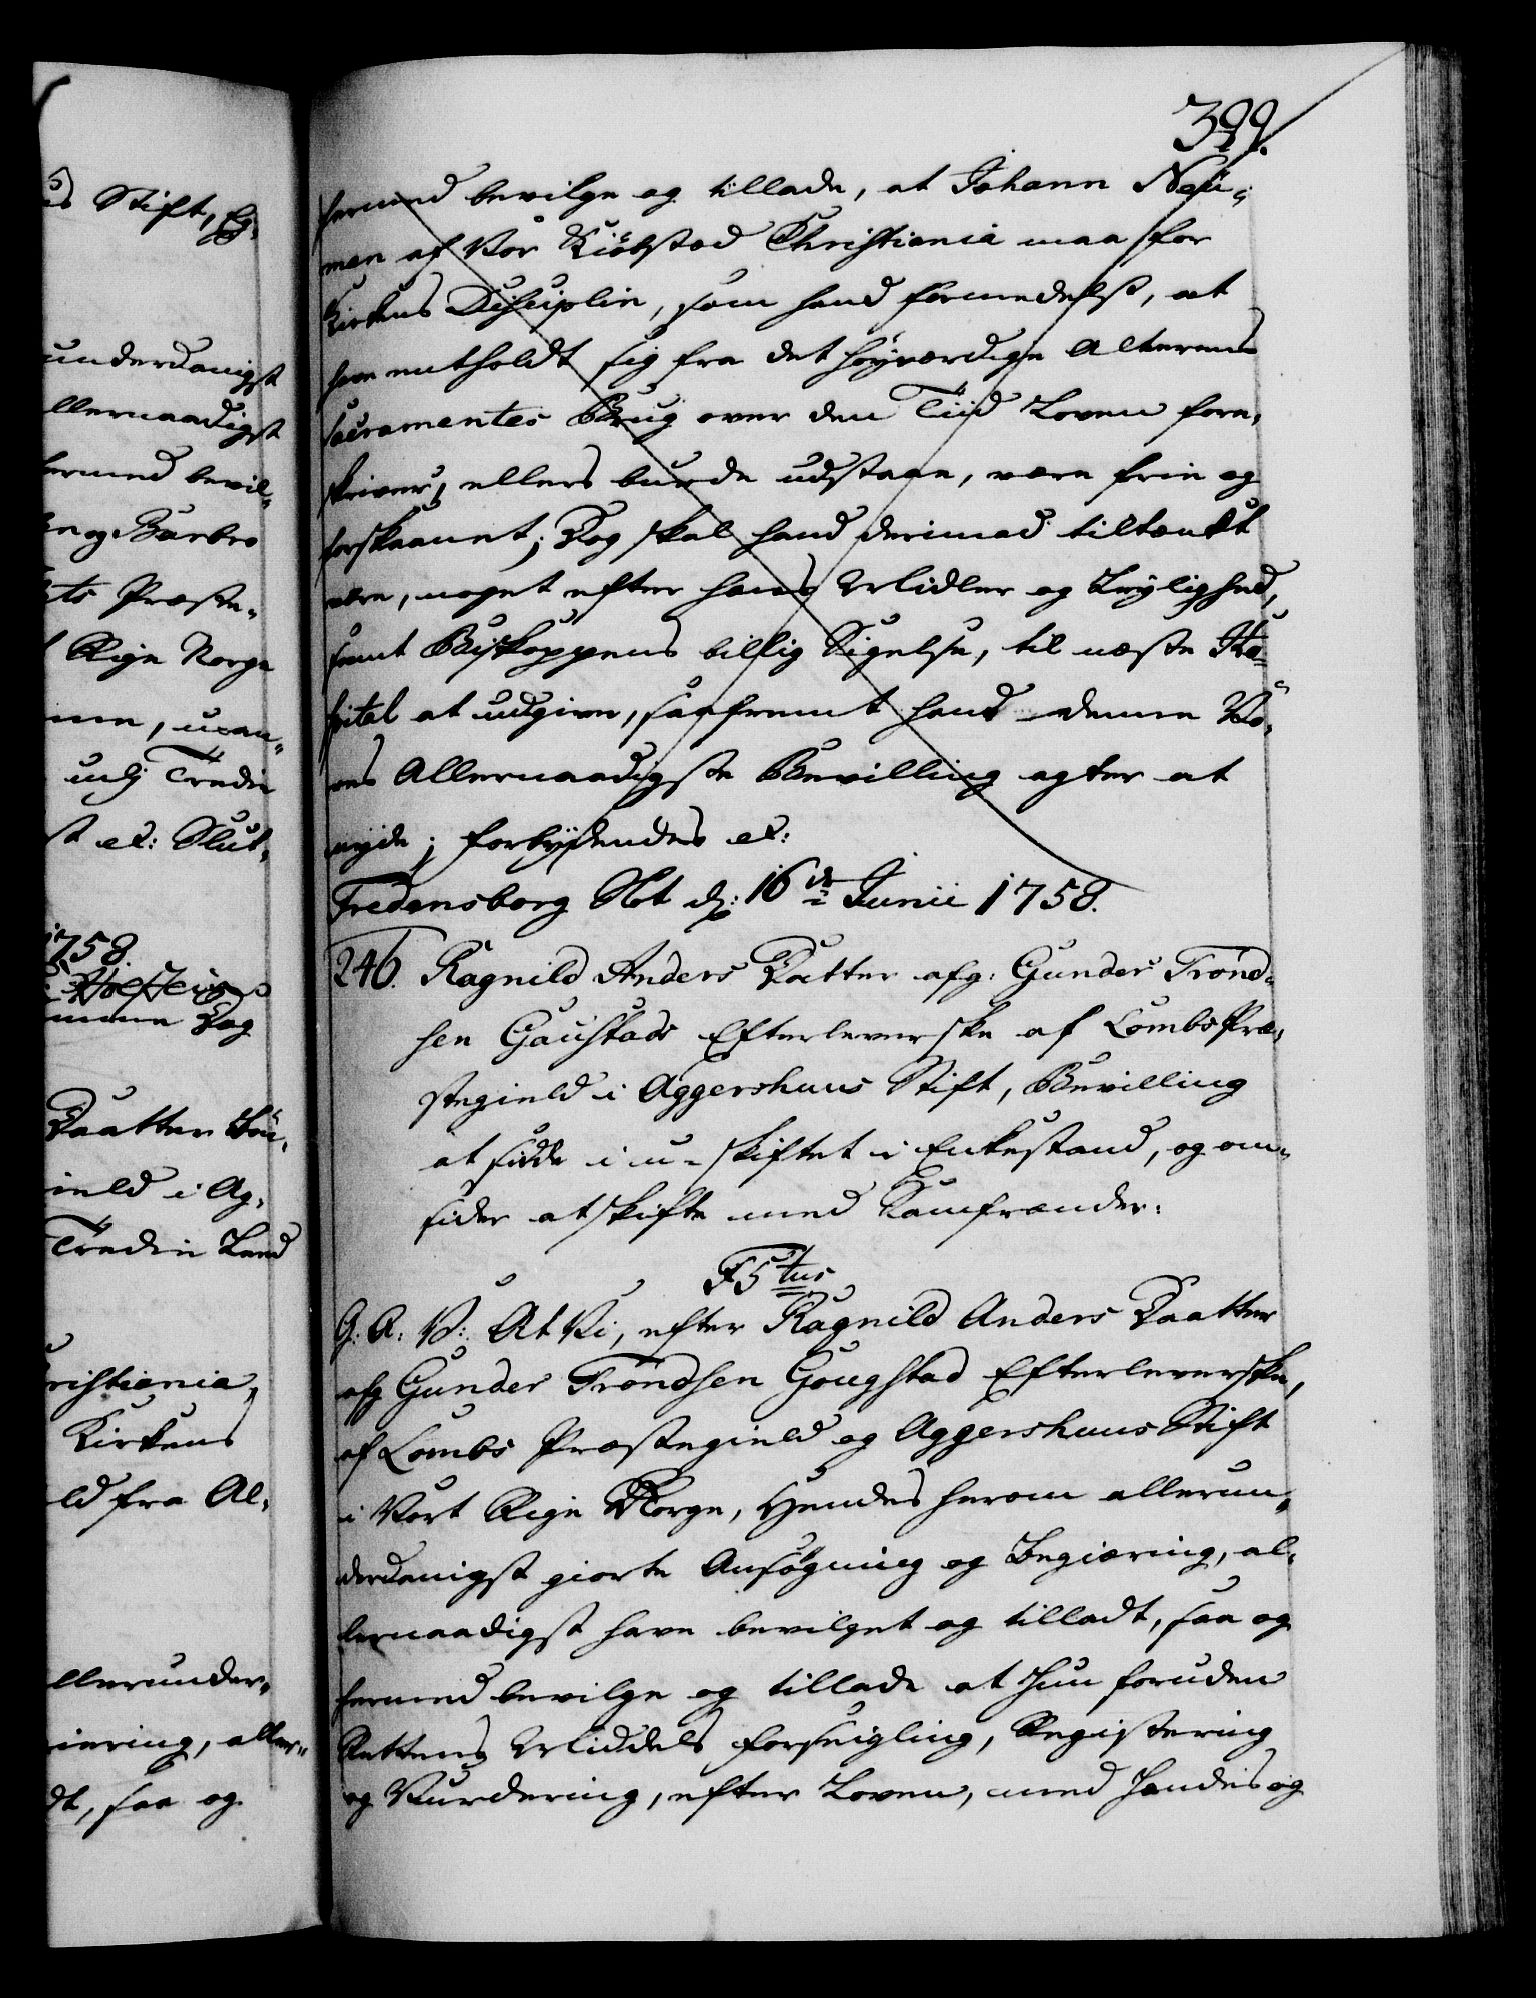 399.
hermed bevilge og tillade, at Johann Neü-
man af Vor Kiöbstad Christiania maa for
Kirkens Disciplin, som hand formedelst, at
have entholdt sig fra det höyværdige Alterens
Sacramentes Brug over den Tiid Loven fore,
skriver, ellers burde udstaae, være frie og
forskaanet; Dog skal hand derimod tiltænkt
være, noget efter hans Midler og Leylighed,
samt Biskoppens billig Sigelse, til næste Ho-
spital at udgive, saafremt hand denne Vo-
res Allernaadigste Bevilling agter at
nyde; forbydendes etc:
Fredensborg Slot d: 16de Junii 1758.
246. Ragnild Anders Datter afg: Gunder Trond-
sen Gaustads Efterleverske af Lombs Præ,
stegield i Aggershuus Stift, Bevilling
at sidde i u-skiftet i Enkestand, og om-
sider at skifte med Samfrænder:
F5tus
G: A: V: At Vi, efter Ragnild Anders Daatter
afg Gunder Trondsen Gougstad Efterleverske,
af Lombs Præstegield og Aggershuus Stift
i Vort Rige Norge, Hendes herom allerun-
derdanigst giorte Ansøgning og Begiæring, al-
lernaadigst have bevilget og tilladt, saa og
hermed bevilge og tillade at Hun foruden
Rettens Middels Forseigling, Registering
og Vurdering, efter Loven, med Hendes og
Stift, Eg,
underdanigst
llernaadigst
hermed bevil-
og Barbro
Præste-
Rige Norge
uan-
udj Tredie
etc: Slut,
1758.
Dag
Daatter
ield i Ag,
Tredie Leed
ristiania,
Kirkens
ld fra Al,
llerunder-
iering, aller-
dt, saa og